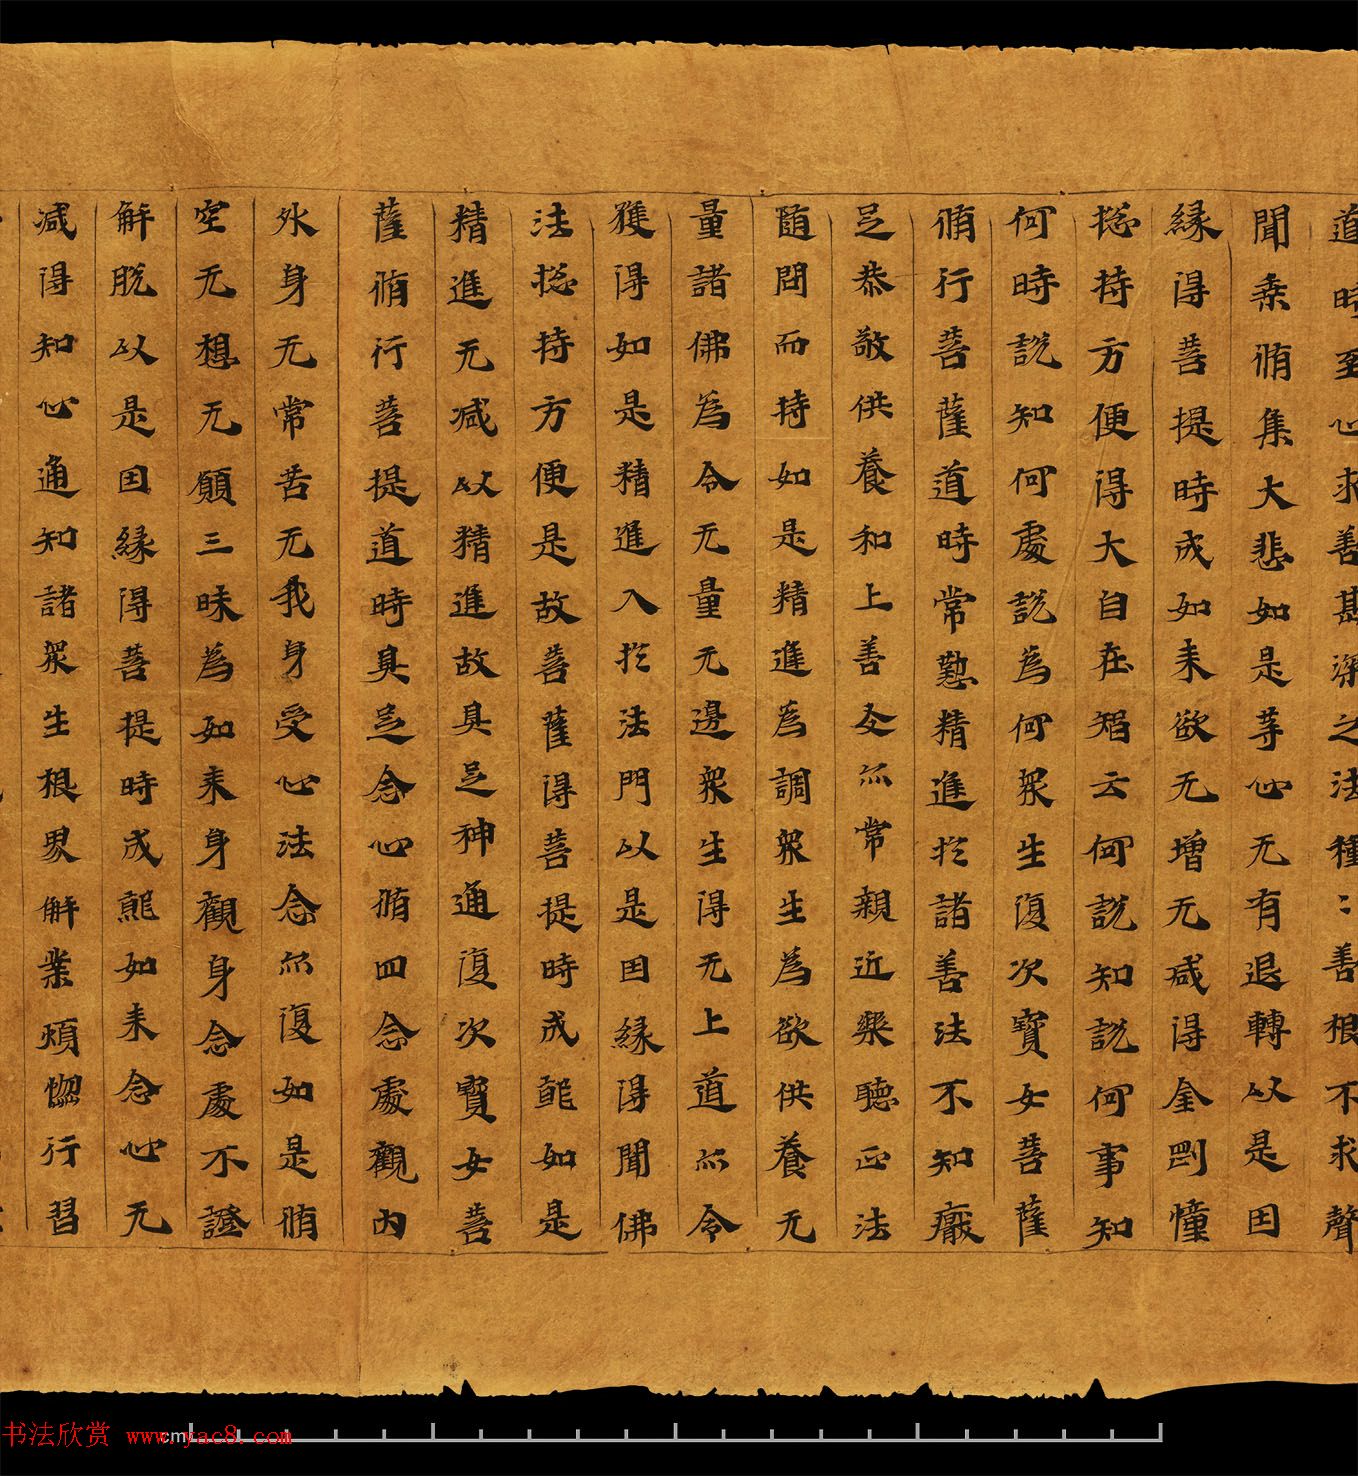 道時至心求善甚深之法種〻善根不求聲
聞乘脩集大悲如是等心无有退轉以是因
緣得菩提時成如来欲无增无減得金剛憧
捴持方便得大自在智云何説知説何事知
何時説知何處説為何衆生復次寶女菩薩
脩行菩薩道時常懃精進於諸善法不知癈
足恭敬供養和上善友亦常親近樂聽正法
随問而持如是精進為調衆生為欲供養无
量諸佛為令无量无邊衆生得无上道亦令
獲得如是精進入於法門以是因緣得聞佛
法捴持方便是故菩薩得菩提時成就如是
精進无減以精進故具足神通復次寶女菩
薩脩行菩提道時具足念心脩四念處觀内
外身无常苦无我身受心法念亦復如是脩
空无想无願三昧為如来身觀身念處不證
解脱以是因緣得菩提時成就如来念心无
減得知心通知諸衆生根界解業煩惱行習
书法欣赏 www.yac8.com
cm